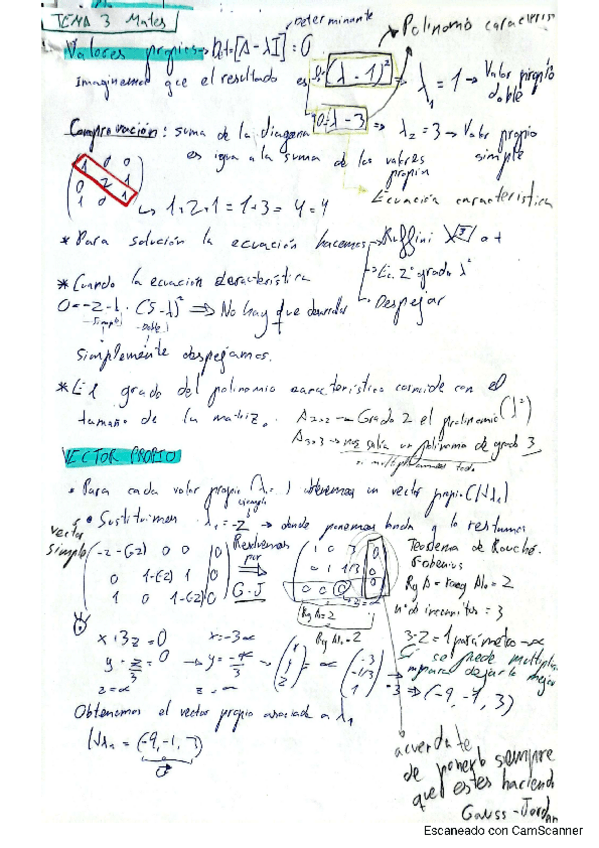 TEMA 3 Mates
Valores propios → Det[A - λI] = 0
Determinante
Polinomio caracterís
Imaginemos que el resultado es (λ - 1)² ⇒ λ₁ = 1 → Valor propio doble
λ - 3 ⇒ λ₂ = 3 → Valor propio simple
Comprovación: suma de la diagonal
es igual a la suma de los valores propios
Ecuación característica
1 0 0
0 2 1
1 0 1
↳ 1+2+1 = 1+3 = 4 = 4
* Para solución la ecuación hacemos → Ruffini
→ Ec. 2º grado λ²
↳ Despejar
* Cuando la ecuación característica
0 = -2-λ · (5-λ)² ⇒ No hay que desarrollar
simple doble
simplemente despejamos.
* El grado del polinomio característico coincide con el
tamaño de la matriz.
A₂ₓ₂ → Grado 2 el polinomio (λ²)
A₃ₓ₃ → nos salia un polinomio de grado 3
si multiplicamos todo
VECTOR PROPIO
• Para cada valor propio (λ₁ ) obtenemos un vector propio (Vλ₁)
ejemplo
• Sustituimos λ₁ = -2 → donde ponemos landa y lo restamos
vector simple
-2-(-2) 0 0 | 0
0 1-(-2) 1 | 0
1 0 1-(-2) | 0
Resolvemos por
G·J
1 0 3 | 0
0 1 1/3 | 0
0 0 0 | 0
Rg A = 2
Rg A₀ = 2
Teorema de Rouché-
Frobenius
Rg A = rang A₀ = 2
nº de incognitas = 3
3-2 = 1 parámetro → α
x + 3z = 0 x = -3α
z = α
se puede multiplicar
para dejarlo mejor
⇒ (-9, -1, 3)
Obtenemos el vector propio asociado a λ₁
Vλ₁ = (-9, -1, 3)
acuerdate
de ponerlo siempre
que estes haciendo
Gauss-Jordan
Escaneado con CamScanner